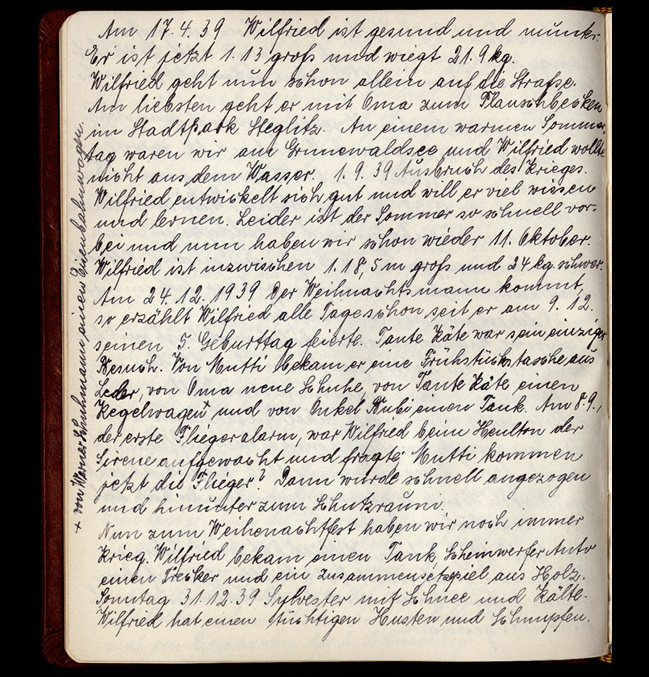 Am 17.4.39 Wilfried ist gesund und munter.
Er ist jetzt 1.13 groß und wiegt 21.9 kg.
Wilfried geht nun schon allein auf die Straße.
Am liebsten geht er mit Oma zum Planschbecken
im Stadtpark Steglitz. An einem warmen Sommer-
tag waren wir am Grunewaldsee und Wilfried wollte
nicht aus dem Wasser. 1.9.39 Ausbruch des Krieges.
Wilfried entwickelt sich gut und will er viel wissen
und lernen. Leider ist der Sommer so schnell vor-
bei und nun haben wir schon wieder 11. Oktober.
Wilfried ist inzwischen 1.18,5 m groß und 24 kg. schwer.
Am 24.12.1939 Der Weihnachtsmann kommt,
so erzählt Wilfried alle Tage schon seit er am 9.12.
seinen 5. Geburttag feierte. Tante Käte war sein einziger
Besuch. Von Mutti bekam er eine Frühstückstasche aus
Leder, von Oma neue Schuhe, von Tante Käte einen
Kegelwagen+ und von Onkel Rubi einen Tank. Am 8.9.,
der erste Fliegeralarm, war Wilfried beim Heulton der
Sirene aufgewacht und fragte: Mutti kommen
jetzt die Flieger? Dann wurde schnell angezogen
und hinunter zum Schutzraum.
Nun zum Weihenachtfest haben wir noch immer
Krieg. Wilfried bekam einen Tank, Scheinwerfer Auto
einen Trecker und ein Zusammensetzspiel aus Holz.
Sonntag 31.12.39 Sylvester mit Schnee und Kälte-
Wilfried hat einen tüchtigen Husten und Schnupfen.
+ von Werner Schuhmann einen Eisenbahnwagen.